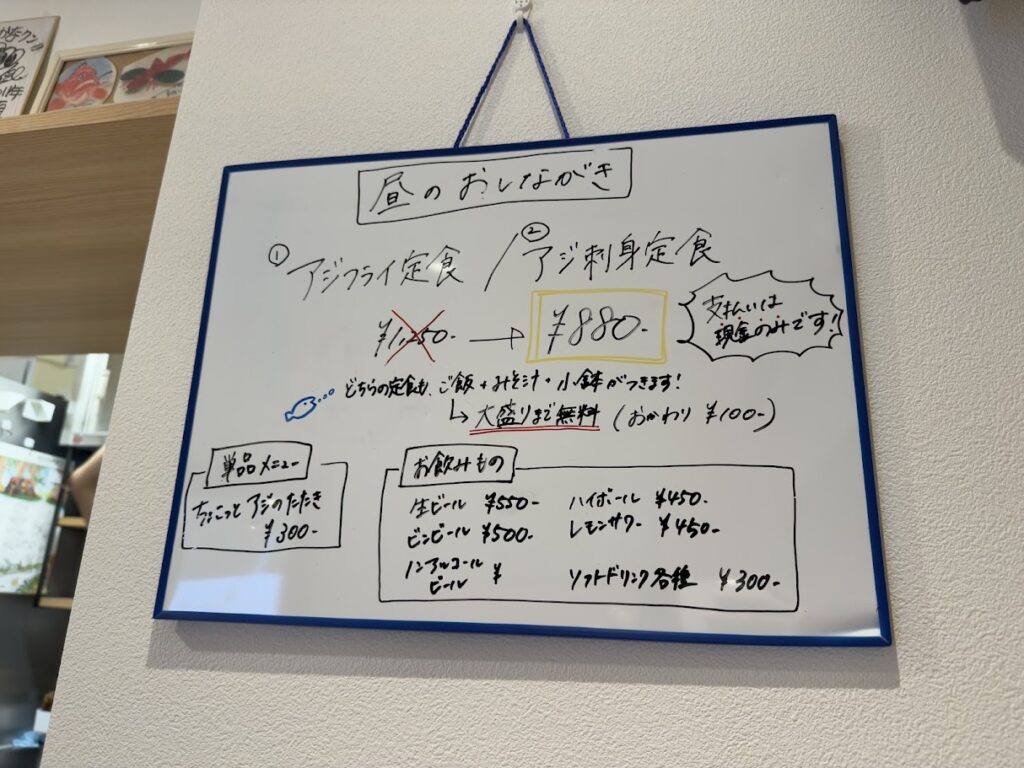 昼のおしながき
① アジフライ定食 / ② アジ刺身定食
¥1,250- → ¥880-
支払いは
現金のみです!
どちらの定食も、ご飯+みそ汁・小鉢がつきます!
↳ 大盛りまで無料 (おかわり ¥100-)
単品メニュー
ちょこっと アジのたたき
¥300-
お飲みもの
生ビール ¥550- ハイボール ¥450-
ビンビール ¥500- レモンサワー ¥450-
ノンアルコール
ビール ¥ ソフトドリンク各種 ¥300-